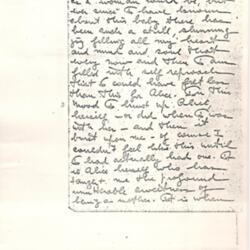 as a woman could be, but
ever since I have known
about this baby there has
been such a still, shining
joy filling all my heart
and mind and soul that
every now and then I am
filled with self reproach
that I could have felt
than this of Alice. In this
mood to hunt up Alice
herself - or did when I was
with her - and then it
burst upon me of course I
couldn't feel like this until
I had actually had one. It
is Alice herself who has
taught me the profound
unutterable sweetness of
being a mother. It is when